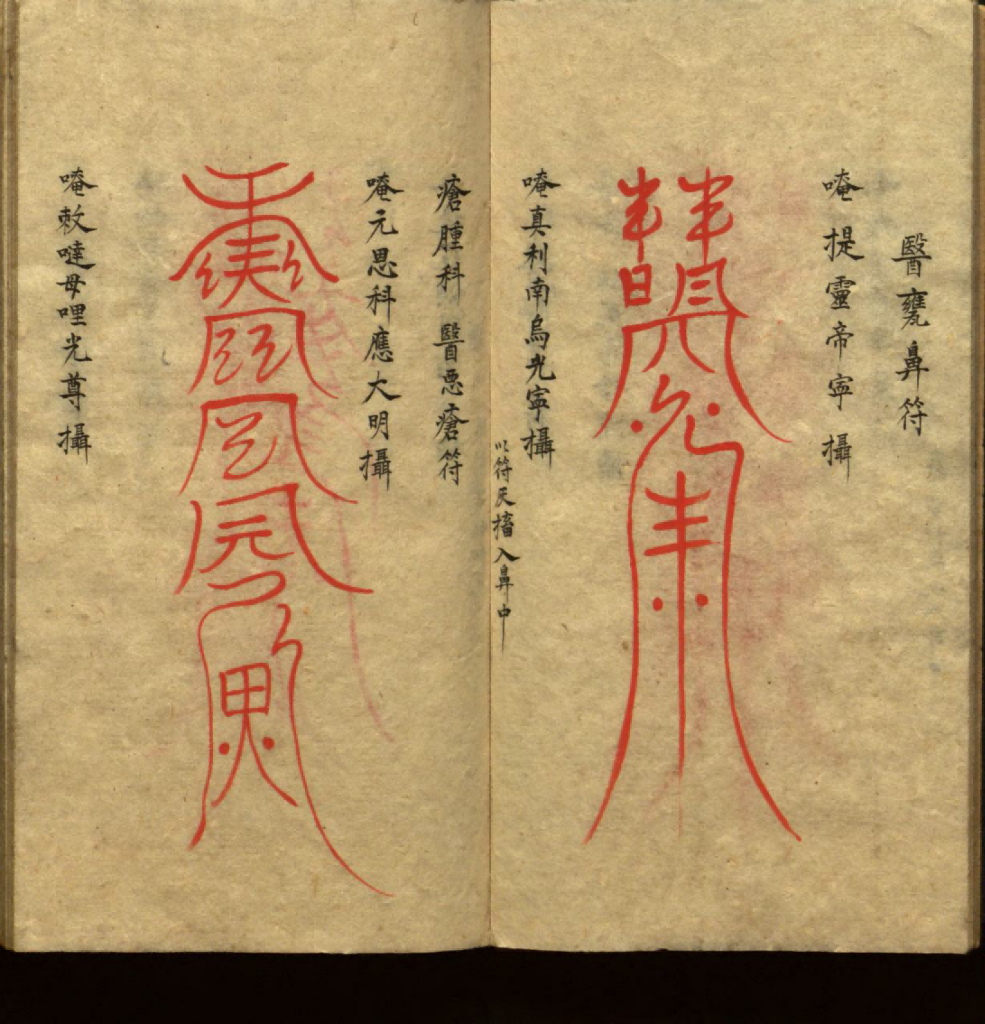 醫甕鼻符
唵提靈帝寜攝
唵真利南烏光寜攝
以符灰擂入鼻中
瘡腫科 醫惡瘡符
唵元思科應大明攝
唵敕噠母哩光尊攝